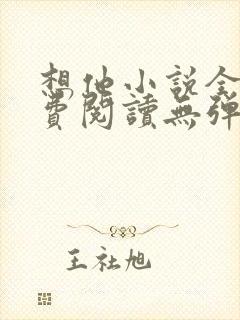 想他小说全
費閱讀無彈
王社旭